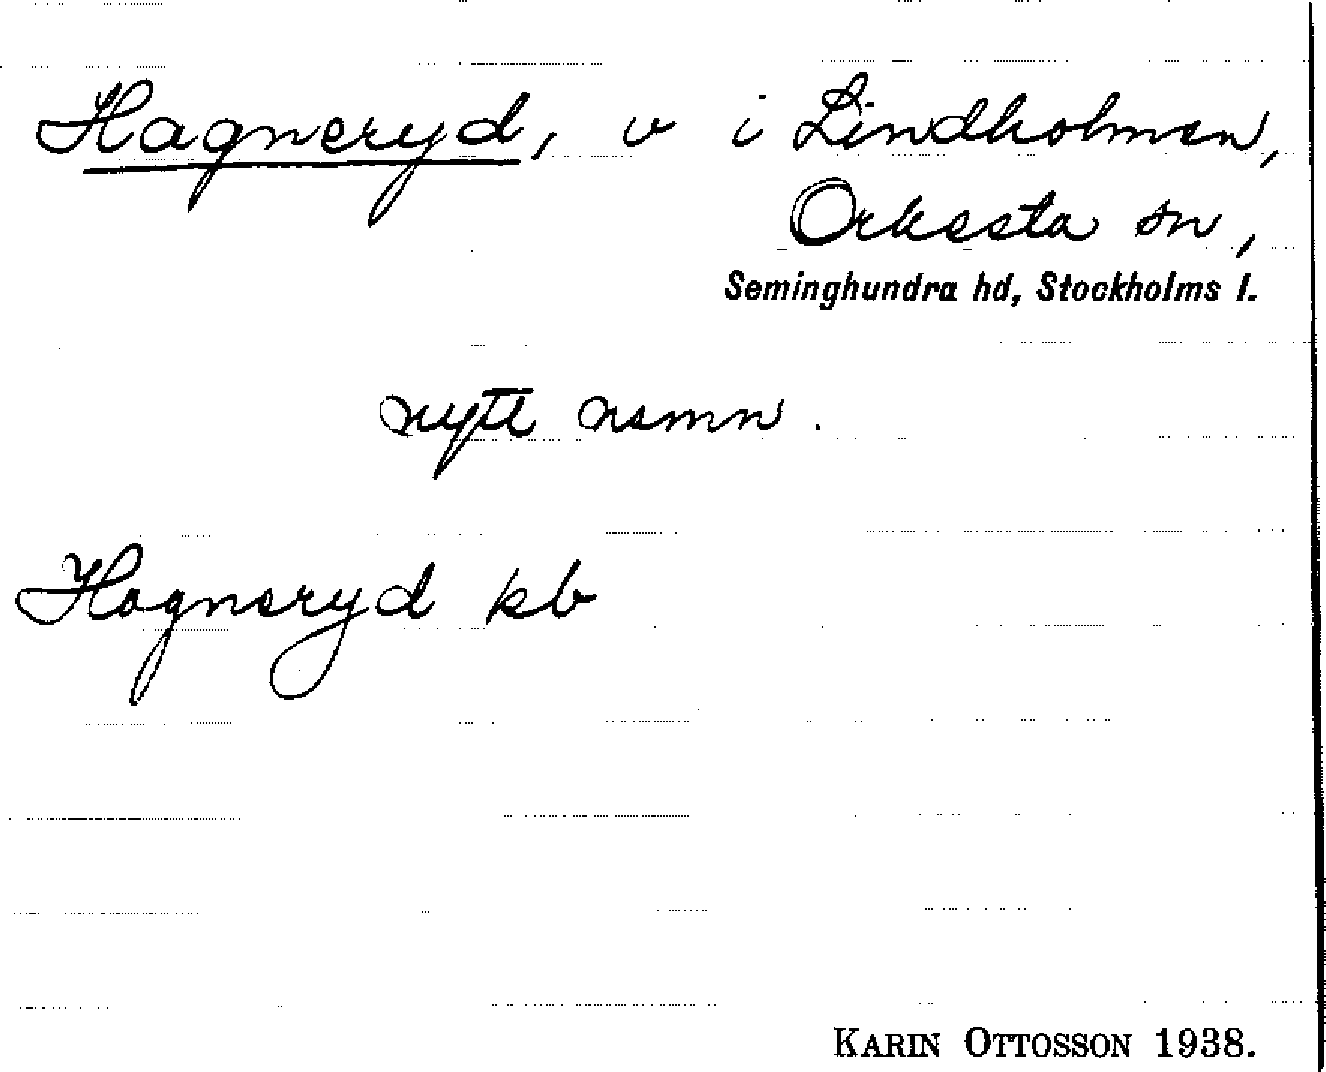 Hagneryd, v i Lindholmen,
Orkesta sn,
Seminghundra hd, Stockholms l.
nytt namn.
Hagneryd kb
KARIN OTTOSSON 1938.